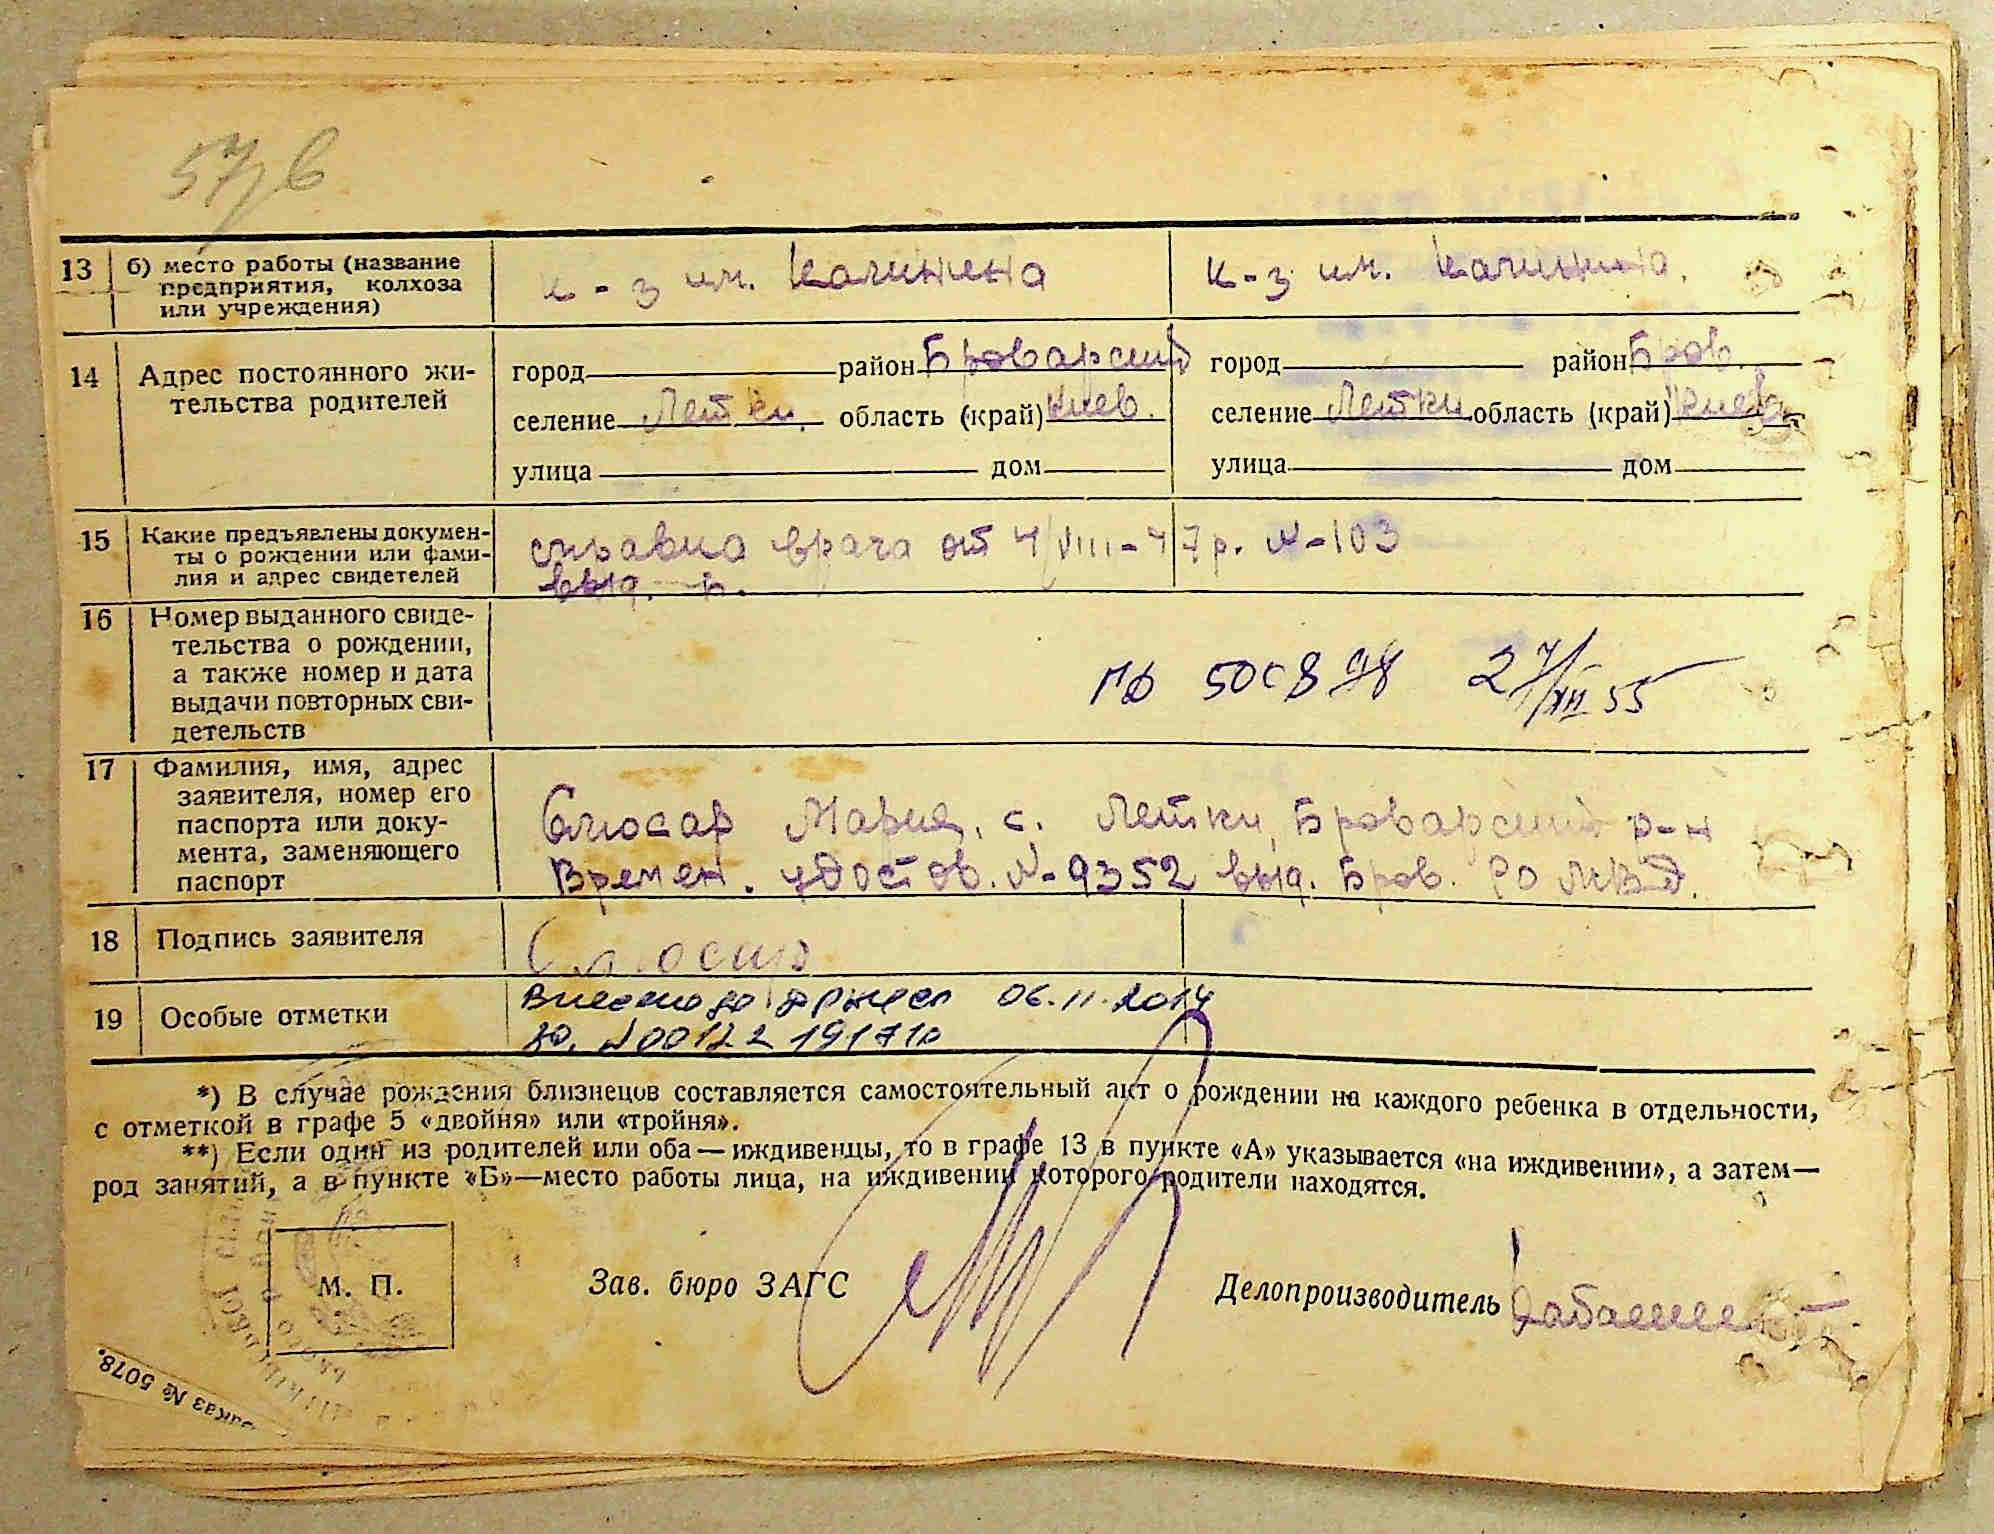 57
13 б) место работы (название предприятия, колхоза или учреждения)
к-з им. Калинина
к-з им. Калинина.
14 Адрес постоянного жи-
тельства родителей
город район Броварский
селение Летки область (край) Киев.
улица дом
город район Бров.
селение Летки область (край) Киев
улица дом
15 Какие предъявлены докумен-
ты о рождении или фами-
лия и адрес свидетелей
справка врача от 4/VIII-47р. N-103
выд.
16 Номер выданного свиде-
тельства о рождении,
а также номер и дата
выдачи повторных сви-
детельств
27/XII 55
17 Фамилия, имя, адрес
заявителя, номер его
паспорта или доку-
мента, заменяющего
паспорт
Слюсар Мария, с. Летки, Броварский р-н
Времен. удостов. N-9352 выд. Бров. РО МВД.
18 Подпись заявителя
Слюсар
19 Особые отметки
Внесено до 06.11.2014
N00122191710
*) В случае рождения близнецов составляется самостоятельный акт о рождении на каждого ребенка в отдельности,
с отметкой в графе 5 «двойня» или «тройня».
**) Если один из родителей или оба — иждивенцы, то в графе 13 в пункте «А» указывается «на иждивении», а затем—
род занятий, а в пункте «Б»—место работы лица, на иждивении которого родители находятся.
М. П.
Зав. бюро ЗАГС
Делопроизводитель
Заказ № 5078.